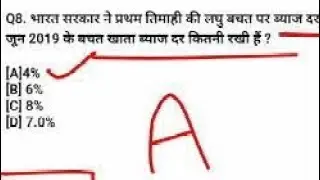 Q8. भारत सरकार ने प्रथम तिमाही की लघु बचत पर ब्याज दर
जून 2019 के बचत खाता ब्याज दर कितनी रखी हैं ?
[A]4%
[B] 6%
[C] 8%
[D] 7.0%
A